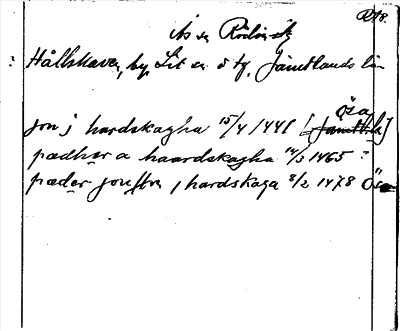 Ås sn Rödöns tg
Hållskaven, by, Lit sn o tg, Jämtlands län
jon j hardskagha 15/4 1441 [Jämtl. h] ösa
pædhær a haardskagha 14/3 1465 ?
pæder jonsson, hardskaga 8/2 1478 Ösa